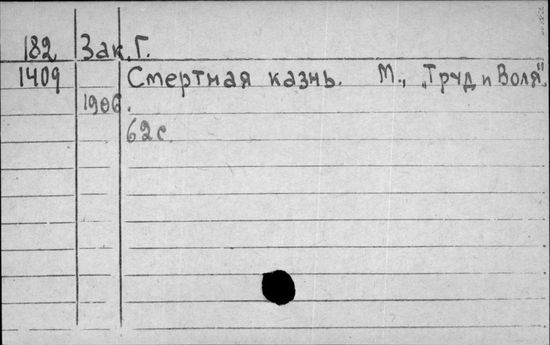 182 Зак, Г.
1409 Смертная казнь. М., „Труд и Воля",
1906.
62 с.